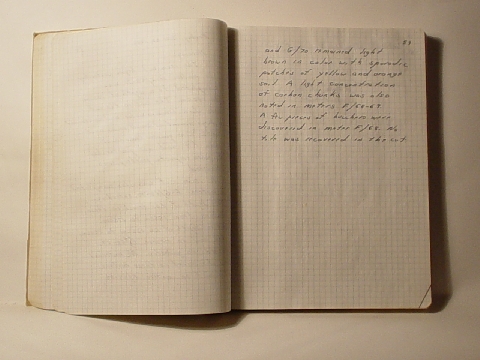 and G/70 remained light
brown in color with sporadic
patches of yellow and orange
soil. A light concentration
of carbon chunks was also
noted in meters F/68-69.
A few pieces of bucchero were
discovered in meter F/68. No
tile was recovered in the cut.